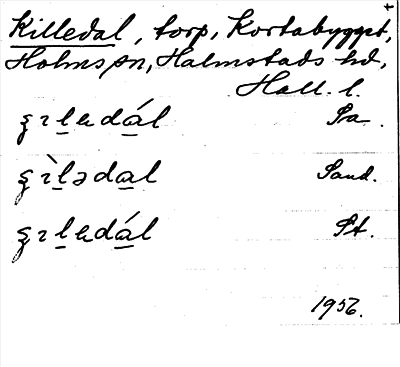 Killedal, torp, Kortabygget,
Holms sn, Halmstads hd,
Hall. l.
ʂɪlɐdál Pa.
ʂɪ̀lədal Sand.
ʂɪlɐdál St.
1956.